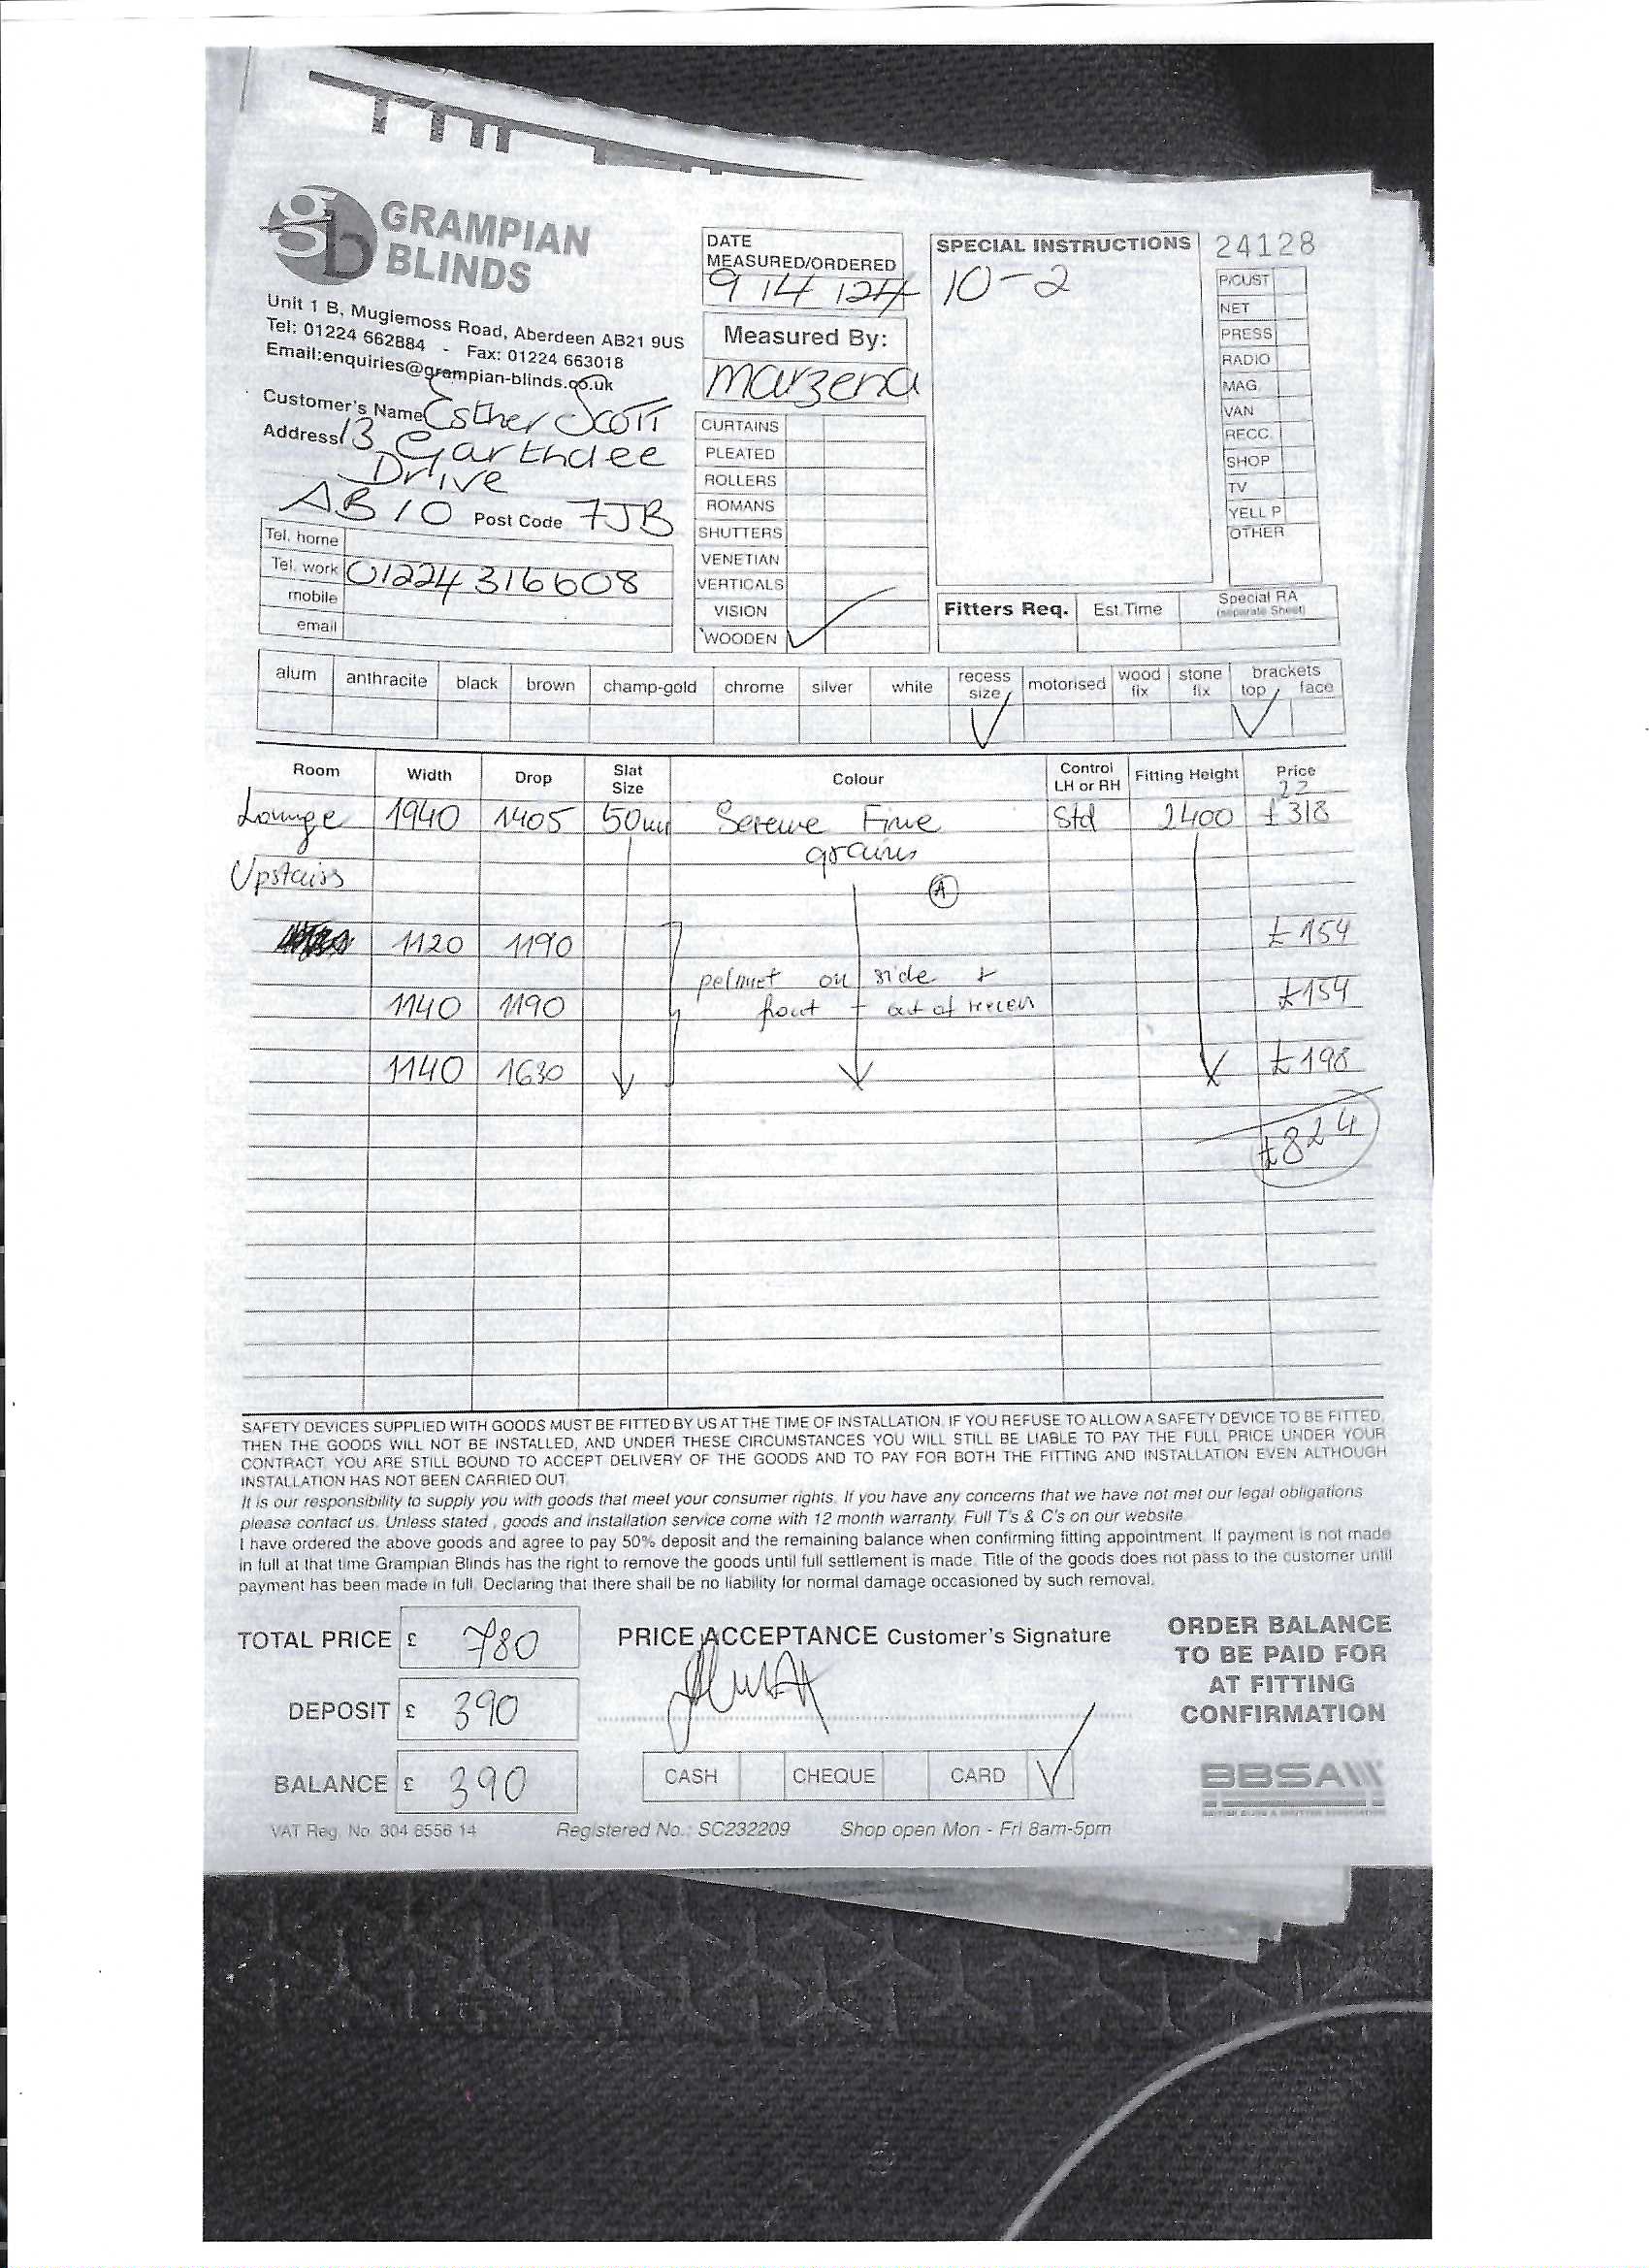 gb GRAMPIAN
BLINDS
Unit 1 B, Muglemoss Road, Aberdeen AB21 9US
Tel: 01224 662884 - Fax: 01224 663018
Email:enquiries@grampian-blinds.co.uk
Customer's Name Esther Scott
Address 13 Garthdee
Drive
AB10 Post Code 7JB
Tel. home
Tel. work 01224 316608
mobile
email
DATE
MEASURED/ORDERED
9/4/24
Measured By:
Marzena
CURTAINS
PLEATED
ROLLERS
ROMANS
SHUTTERS
VENETIAN
VERTICALS
VISION
WOODEN ✓
SPECIAL INSTRUCTIONS
10-2
24128
P/CUST
NET
PRESS
RADIO
MAG
VAN
RECC.
SHOP
TV
YELL P
OTHER
Fitters Req. Est.Time Special RA
(separate Sheet)
alum anthracite black brown champ-gold chrome silver white recess size ✓ motorised wood fix stone fix brackets top ✓ face
Room Width Drop Slat Size Colour Control LH or RH Fitting Height Price
22
Lounge 1940 1405 50mm Serene Fine Std 2400 £318
grains
Upstairs
A
1120 1190 £154
pelmet on side +
1140 1190 front - out of recess £154
1140 1630 £198
£824
SAFETY DEVICES SUPPLIED WITH GOODS MUST BE FITTED BY US AT THE TIME OF INSTALLATION. IF YOU REFUSE TO ALLOW A SAFETY DEVICE TO BE FITTED,
THEN THE GOODS WILL NOT BE INSTALLED, AND UNDER THESE CIRCUMSTANCES YOU WILL STILL BE LIABLE TO PAY THE FULL PRICE UNDER YOUR
CONTRACT. YOU ARE STILL BOUND TO ACCEPT DELIVERY OF THE GOODS AND TO PAY FOR BOTH THE FITTING AND INSTALLATION EVEN ALTHOUGH
INSTALLATION HAS NOT BEEN CARRIED OUT.
It is our responsibility to supply you with goods that meet your consumer rights. If you have any concerns that we have not met our legal obligations
please contact us. Unless stated , goods and installation service come with 12 month warranty. Full T's & C's on our website.
I have ordered the above goods and agree to pay 50% deposit and the remaining balance when confirming fitting appointment. If payment is not made
in full at that time Grampian Blinds has the right to remove the goods until full settlement is made. Title of the goods does not pass to the customer until
payment has been made in full. Declaring that there shall be no liability for normal damage occasioned by such removal.
TOTAL PRICE £ 780
DEPOSIT £ 390
BALANCE £ 390
PRICE ACCEPTANCE Customer's Signature
CASH CHEQUE CARD ✓
ORDER BALANCE
TO BE PAID FOR
AT FITTING
CONFIRMATION
BBSA
VAT Reg. No. 304 6556 14 Registered No.: SC232209 Shop open Mon - Fri 8am-5pm